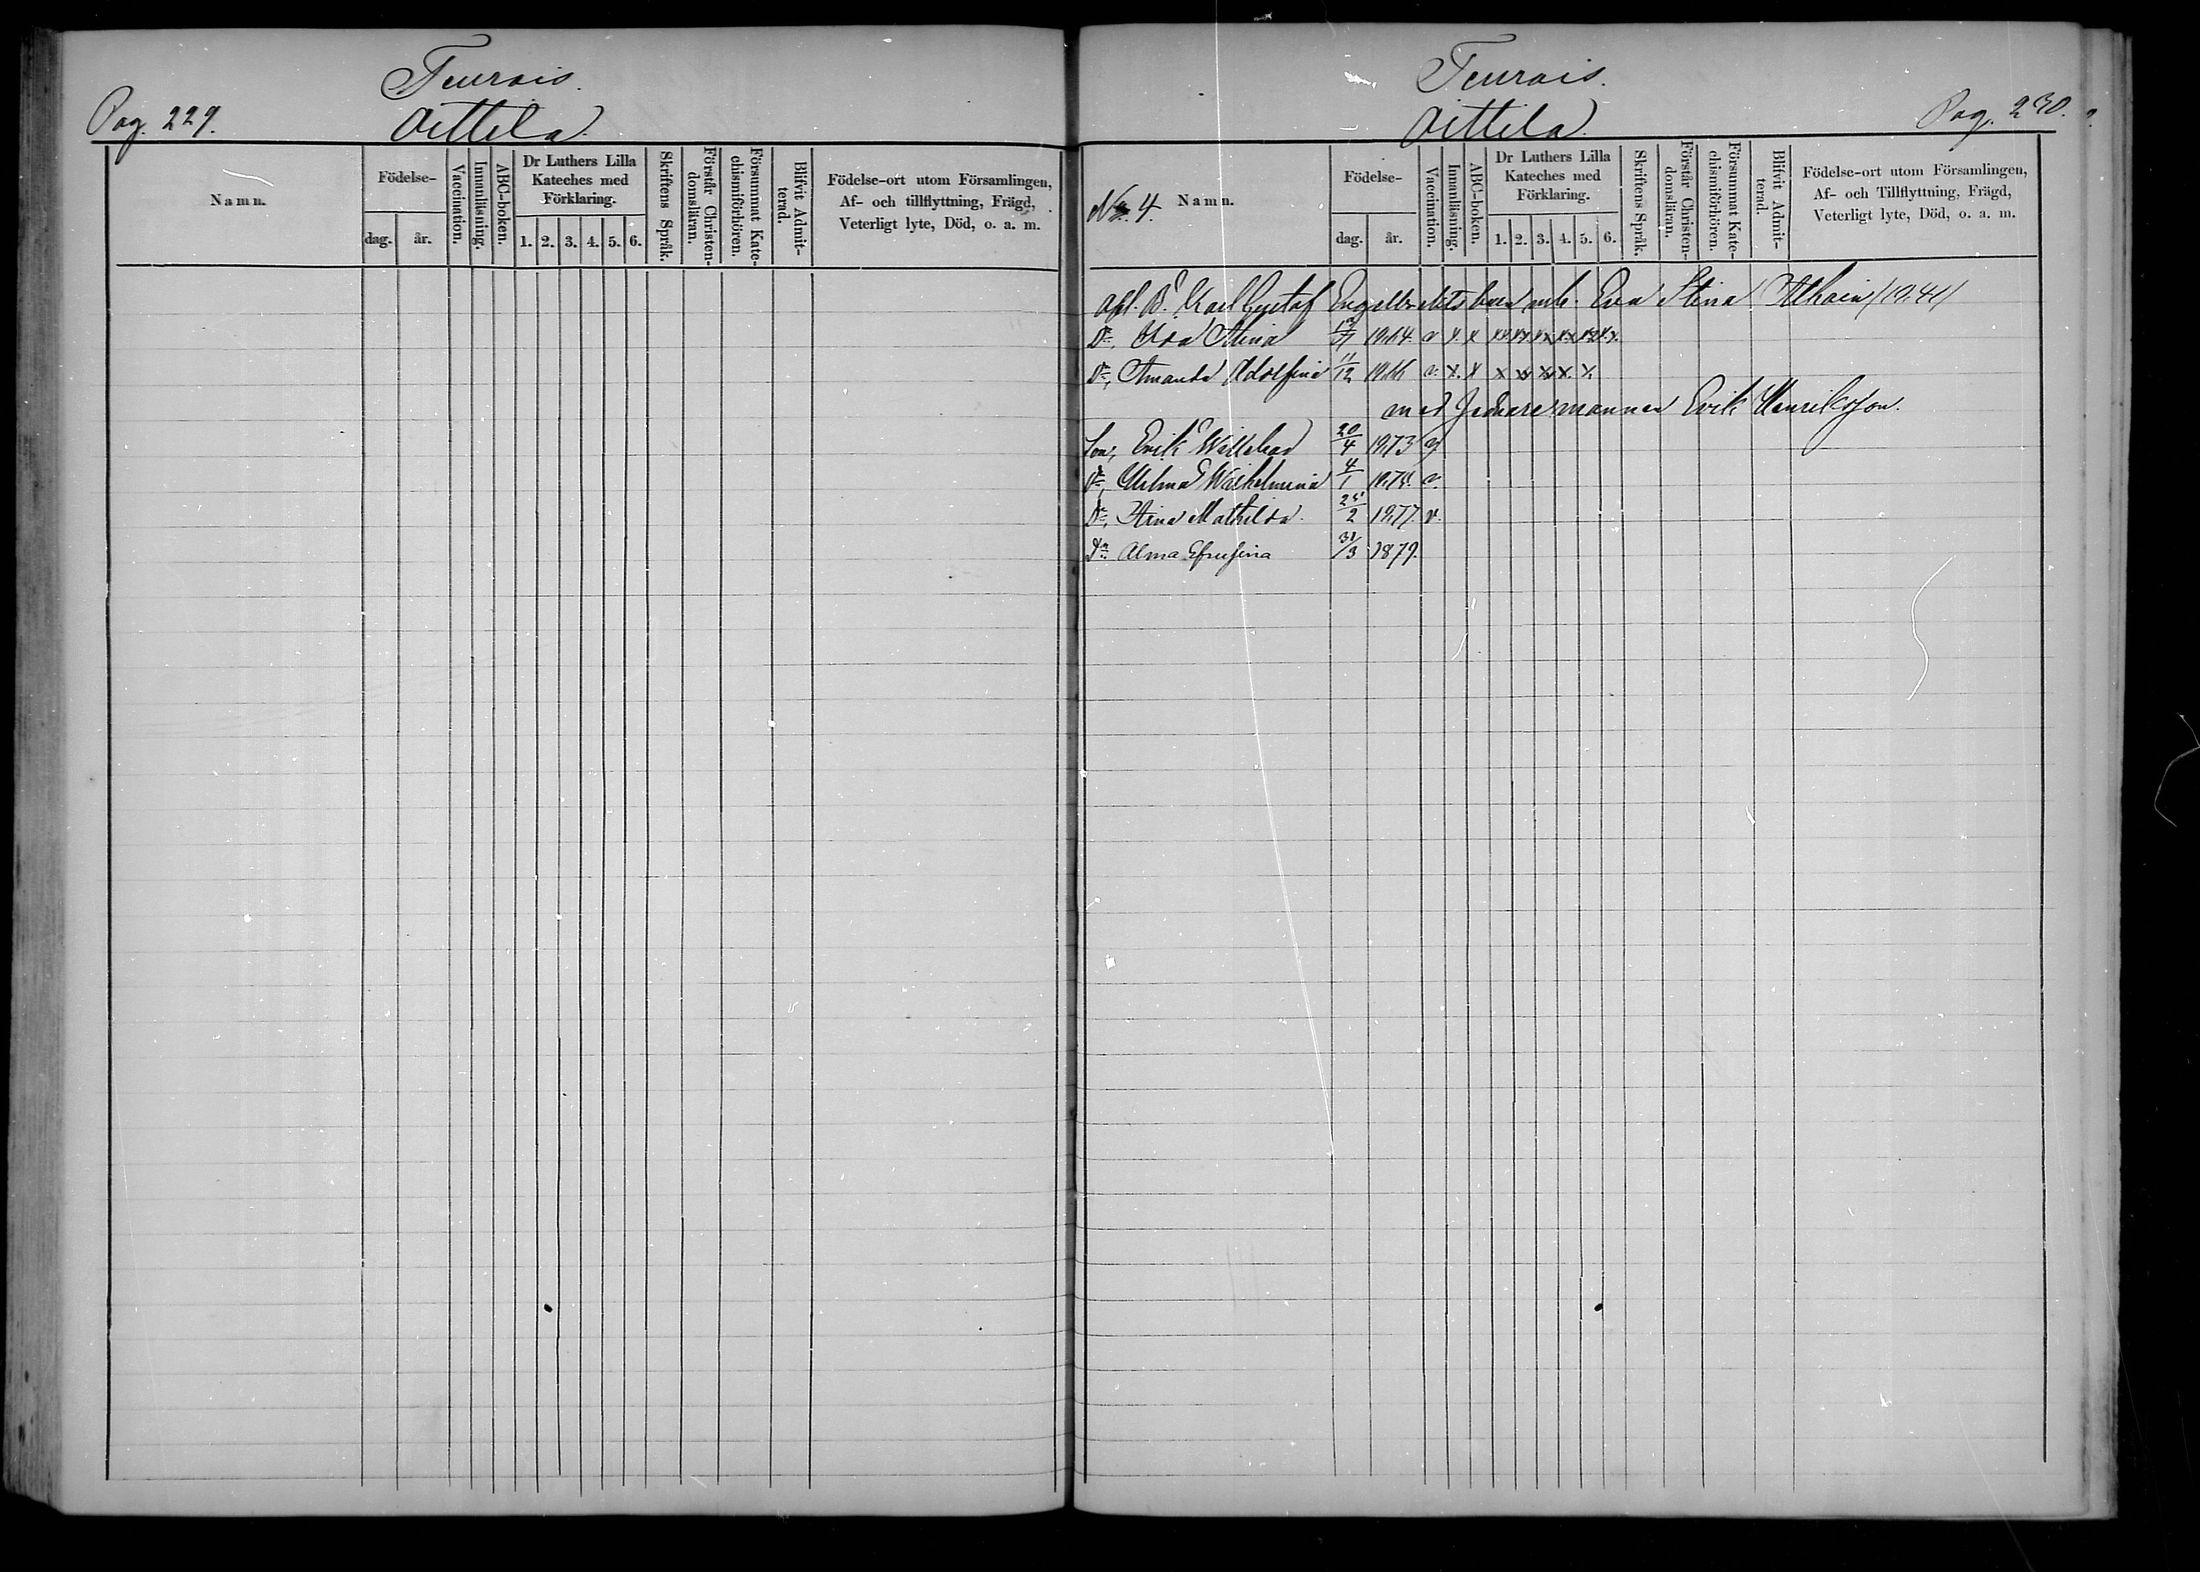 Teurois.
Pag. 229.
Oittila
Namn.
Födelse-
dag.
år.
Vaccination.
Innanläsning.
ABC-boken.
Dr Luthers Lilla
Kateches med
Förklaring.
1. 2. 3. 4. 5. 6.
Skriftens Språk.
Förstår Christen-
domsläran.
Försummat Kate-
chismiförhören.
Blifvit Admit-
terad.
Födelse-ort utom Församlingen,
Af- och tillflyttning, Frägd,
Veterligt lyte, Död, o. a. m.
Teurois.
Oittila.
Pag. 230.
No. 4.
Namn.
Födelse-
dag.
år.
Vaccination.
Innanläsning.
ABC-boken.
Dr Luthers Lilla
Kateches med
Förklaring.
1. 2. 3. 4. 5. 6.
Skriftens Språk.
Förstår Christen-
domsläran.
Försummat Kate-
chismiförhören.
Blifvit Admit-
terad.
Födelse-ort utom Församlingen,
Af- och Tillflyttning, Frägd,
Veterligt lyte, Död, o. a. m.
afl. B. Karl Gustaf Engelbrekts barn m. Eva Stina
Dr. Ida Stina 1864. v x x xx xx xx xx xx xx
Dr. Amanda Adolfina 11/12 1866 v. x. x x xx xx x. x.
med Jordbruksmannen Erik Henriksson.
Son, Erik 20/4 1873 v
Dr. Wilhelmina 4/1 1875. v.
Dr. Stina Mathilda. 25/2 1877. v.
Dr. Alma Efrosina 31/3 1879.